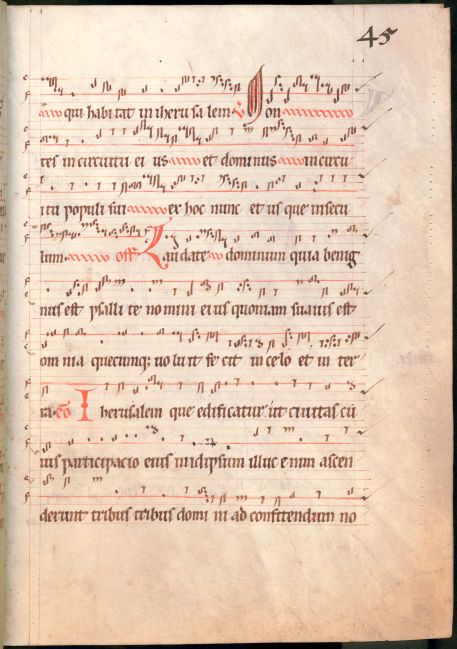 45
qui habitat in iherusalem ℣ Mon
tes in circuitu eius et dominus in circu
itu populi sui ex hoc nunc et usque in secu
lum. off Laudate dominum quia benig
nus est psallite nomini eius quoniam suavis est
omnia quecumq; voluit fecit in celo et in ter
ra. co Iherusalem que edificatur ut civitas cū
ius participacio eius in idipsum illuc enim ascen
derunt tribus tribus domini ad confitendum no